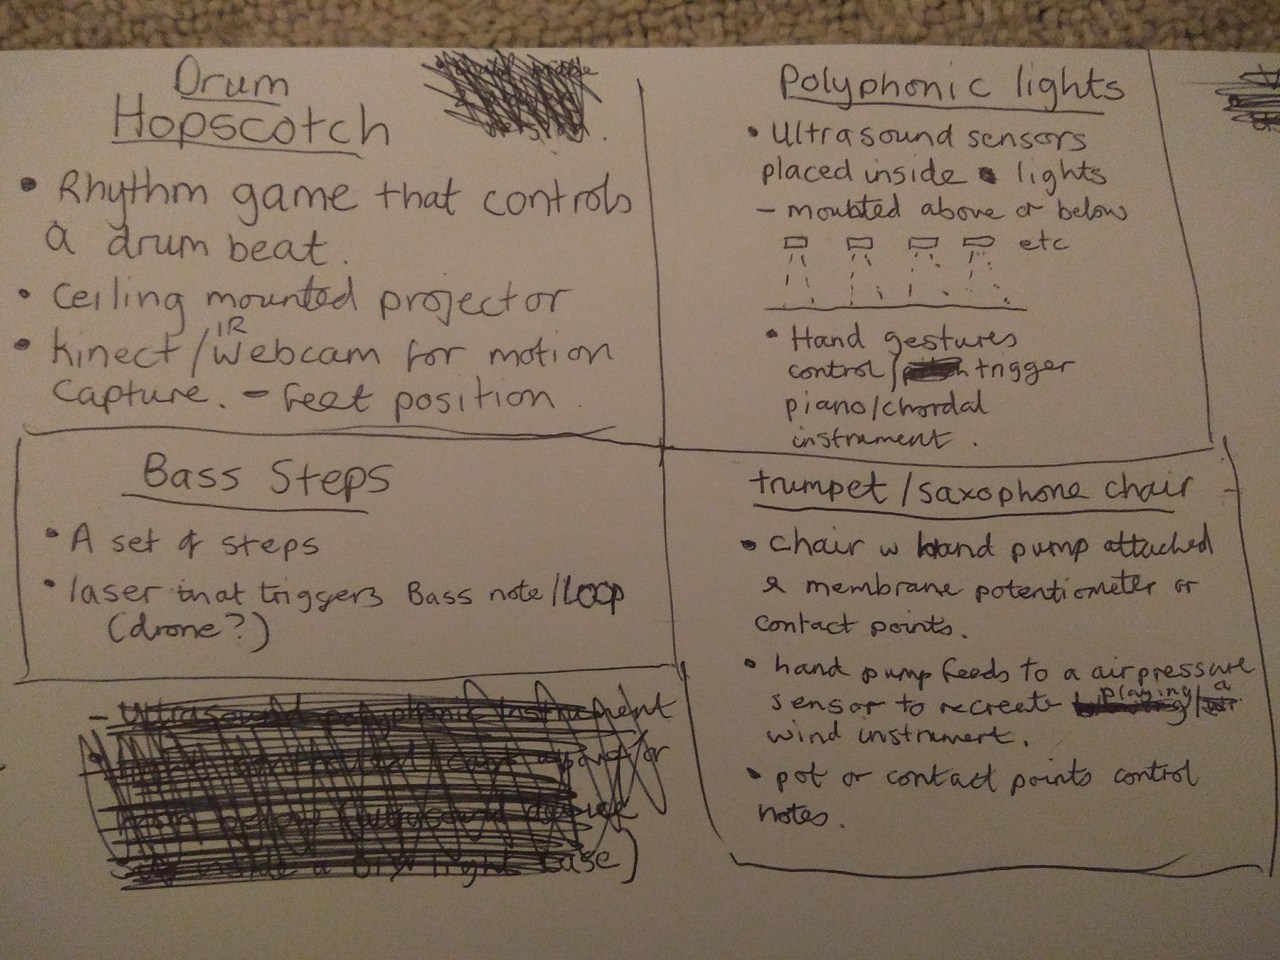 Drum
Hopscotch
• Rhythm game that controls
a drum beat.
• Ceiling mounted projector
IR
• Kinect/Webcam for motion
Capture. – feet position.
Polyphonic lights
• Ultrasound sensors
placed inside lights
– moubted above or below
etc
• Hand gestures
control/trigger
piano/chordal
instrument.
Bass Steps
• A set of steps
• laser that triggers Bass note/Loop
(drone?)
– Ultrasound polyphonic instrument
above or
from below (ultrasound device
inside a DIY light case)
trumpet/saxophone chair
• Chair w hand pump attached
& membrane potentiometer or
contact points.
• hand pump feeds to a air pressure
playing a
sensor to recreate
wind instrument.
• pot or contact points control
notes.